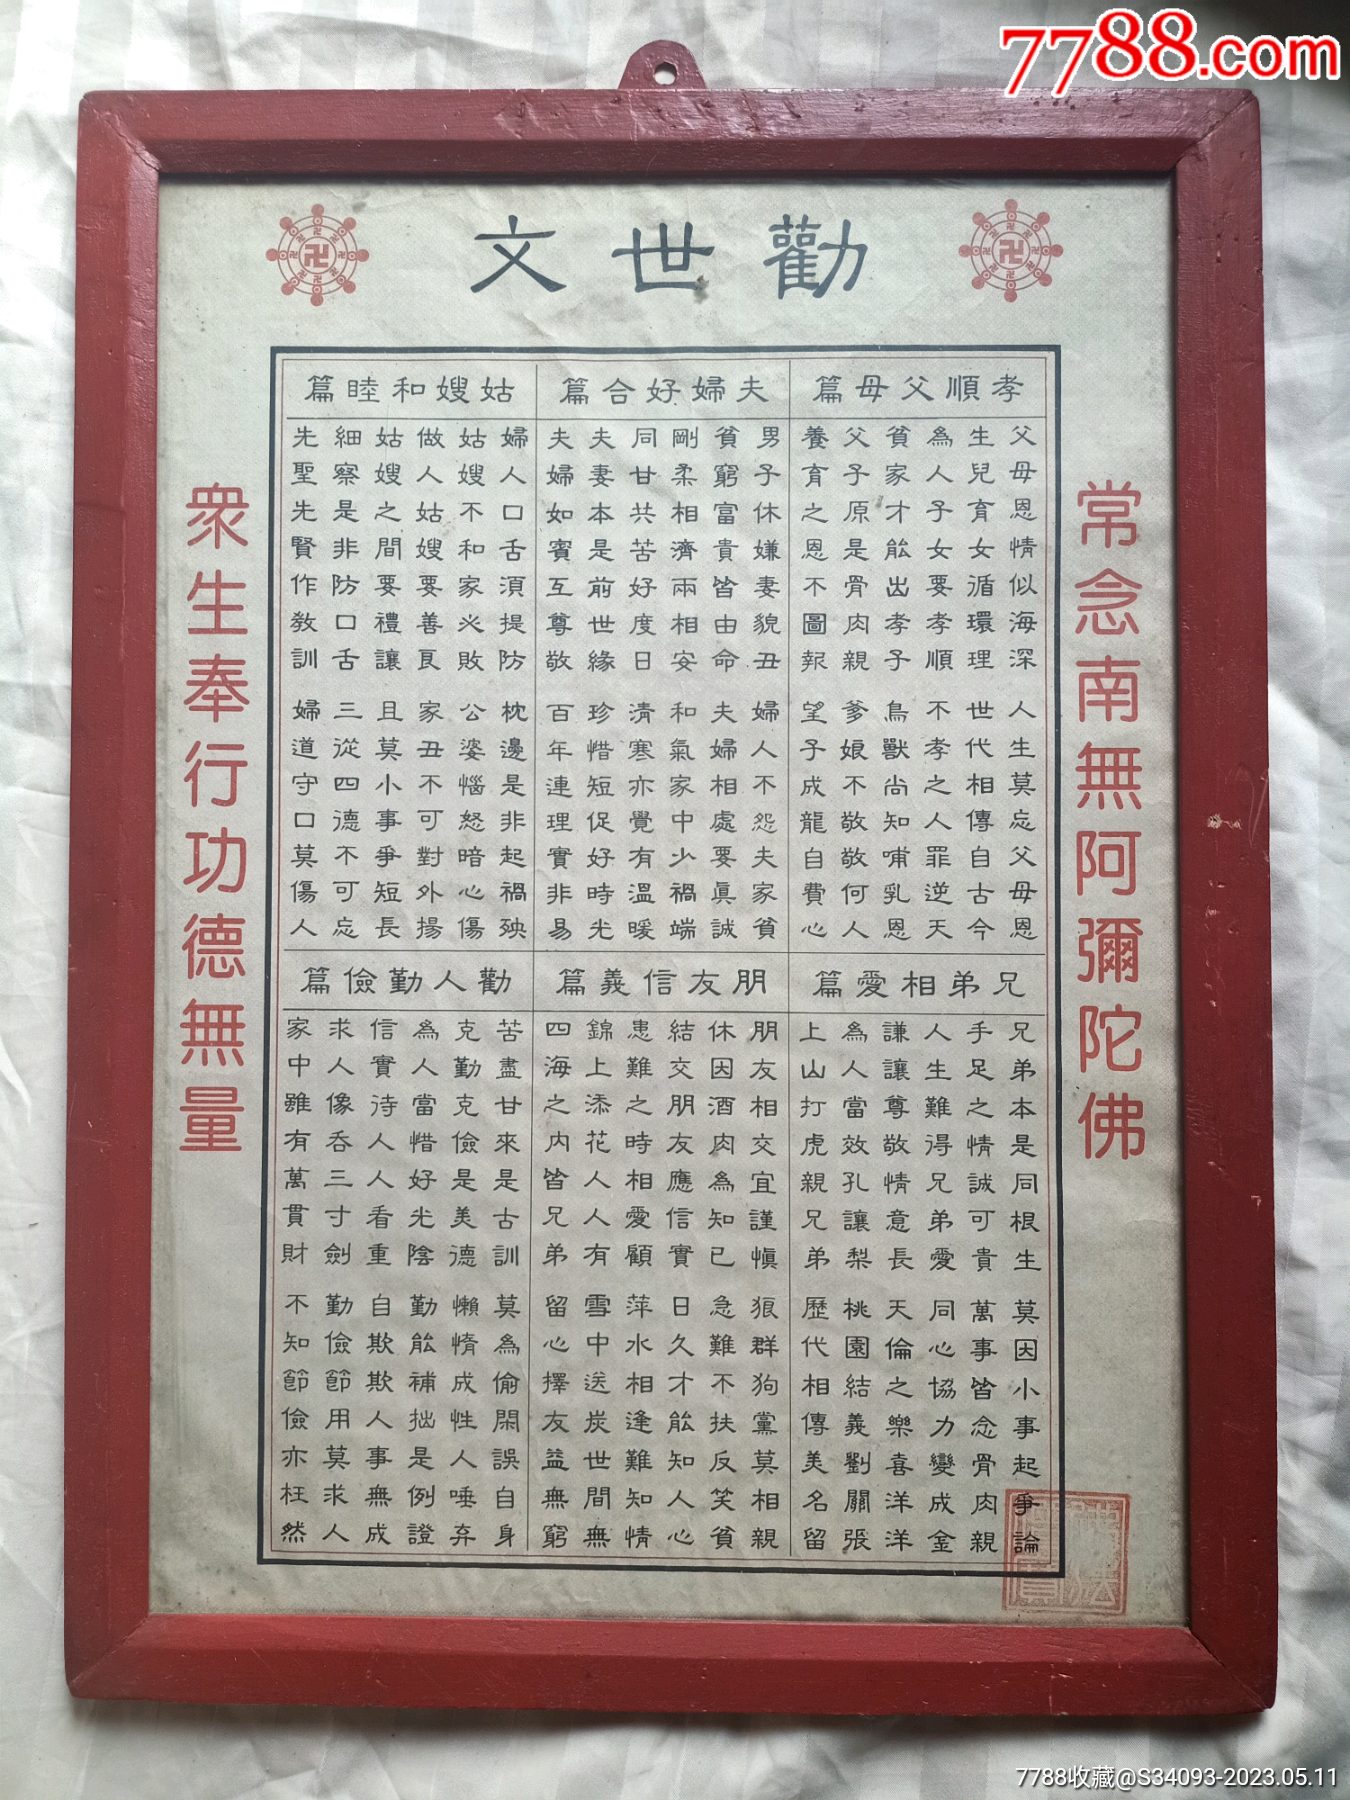 7788.com
勸世文
常念南無阿彌陀佛
孝順父母篇
父母恩情似海深 人生莫忘父母恩
生兒育女循環理 世代相傳自古今
為人子女要孝順 不孝之人罪逆天
貧家才能出孝子 鳥獸尚知哺乳恩
父子原是骨肉親 爹娘不敬敬何人
養育之恩不圖報 望子成龍自費心
夫婦好合篇
男子休嫌妻貌丑 婦人不怨夫家貧
貧窮富貴皆由命 夫婦相處要真誠
剛柔相濟兩相安 和氣家中少禍端
同甘共苦好度日 清寒亦覺有溫暖
夫妻本是前世緣 珍惜短促好時光
夫婦如賓互尊敬 百年連理實非易
姑嫂和睦篇
婦人口舌須提防 枕邊是非起禍殃
姑嫂不和家必敗 公婆惱怒暗心傷
做人姑嫂要善良 家丑不可對外揚
姑嫂之間要禮讓 且莫小事爭短長
細察是非防口舌 三從四德不可忘
先聖先賢作教訓 婦道守口莫傷人
兄弟相愛篇
兄弟本是同根生 莫因小事起爭論
手足之情誠可貴 萬事皆念骨肉親
人生難得兄弟愛 同心協力變成金
謙讓尊敬情意長 天倫之樂喜洋洋
為人當效孔讓梨 桃園結義劉關張
上山打虎親兄弟 歷代相傳美名留
朋友信義篇
朋友相交宜謹慎 狼群狗黨莫相親
休因酒肉為知已 急難不扶反笑貧
結交朋友應信實 日久才能知人心
患難之時相愛顧 萍水相逢難知情
錦上添花人人有 雪中送炭世間無
四海之內皆兄弟 留心擇友益無窮
勸人勤儉篇
苦盡甘來是古訓 莫為偷閑誤自身
克勤克儉是美德 懶惰成性人唾弃
為人當惜好光陰 勤能補拙是例證
信實待人人看重 自欺欺人事無成
求人像吞三寸劍 勤儉節用莫求人
家中雖有萬貫財 不知節儉亦枉然
眾生奉行功德無量
7788收藏@S34093-2023.05.11